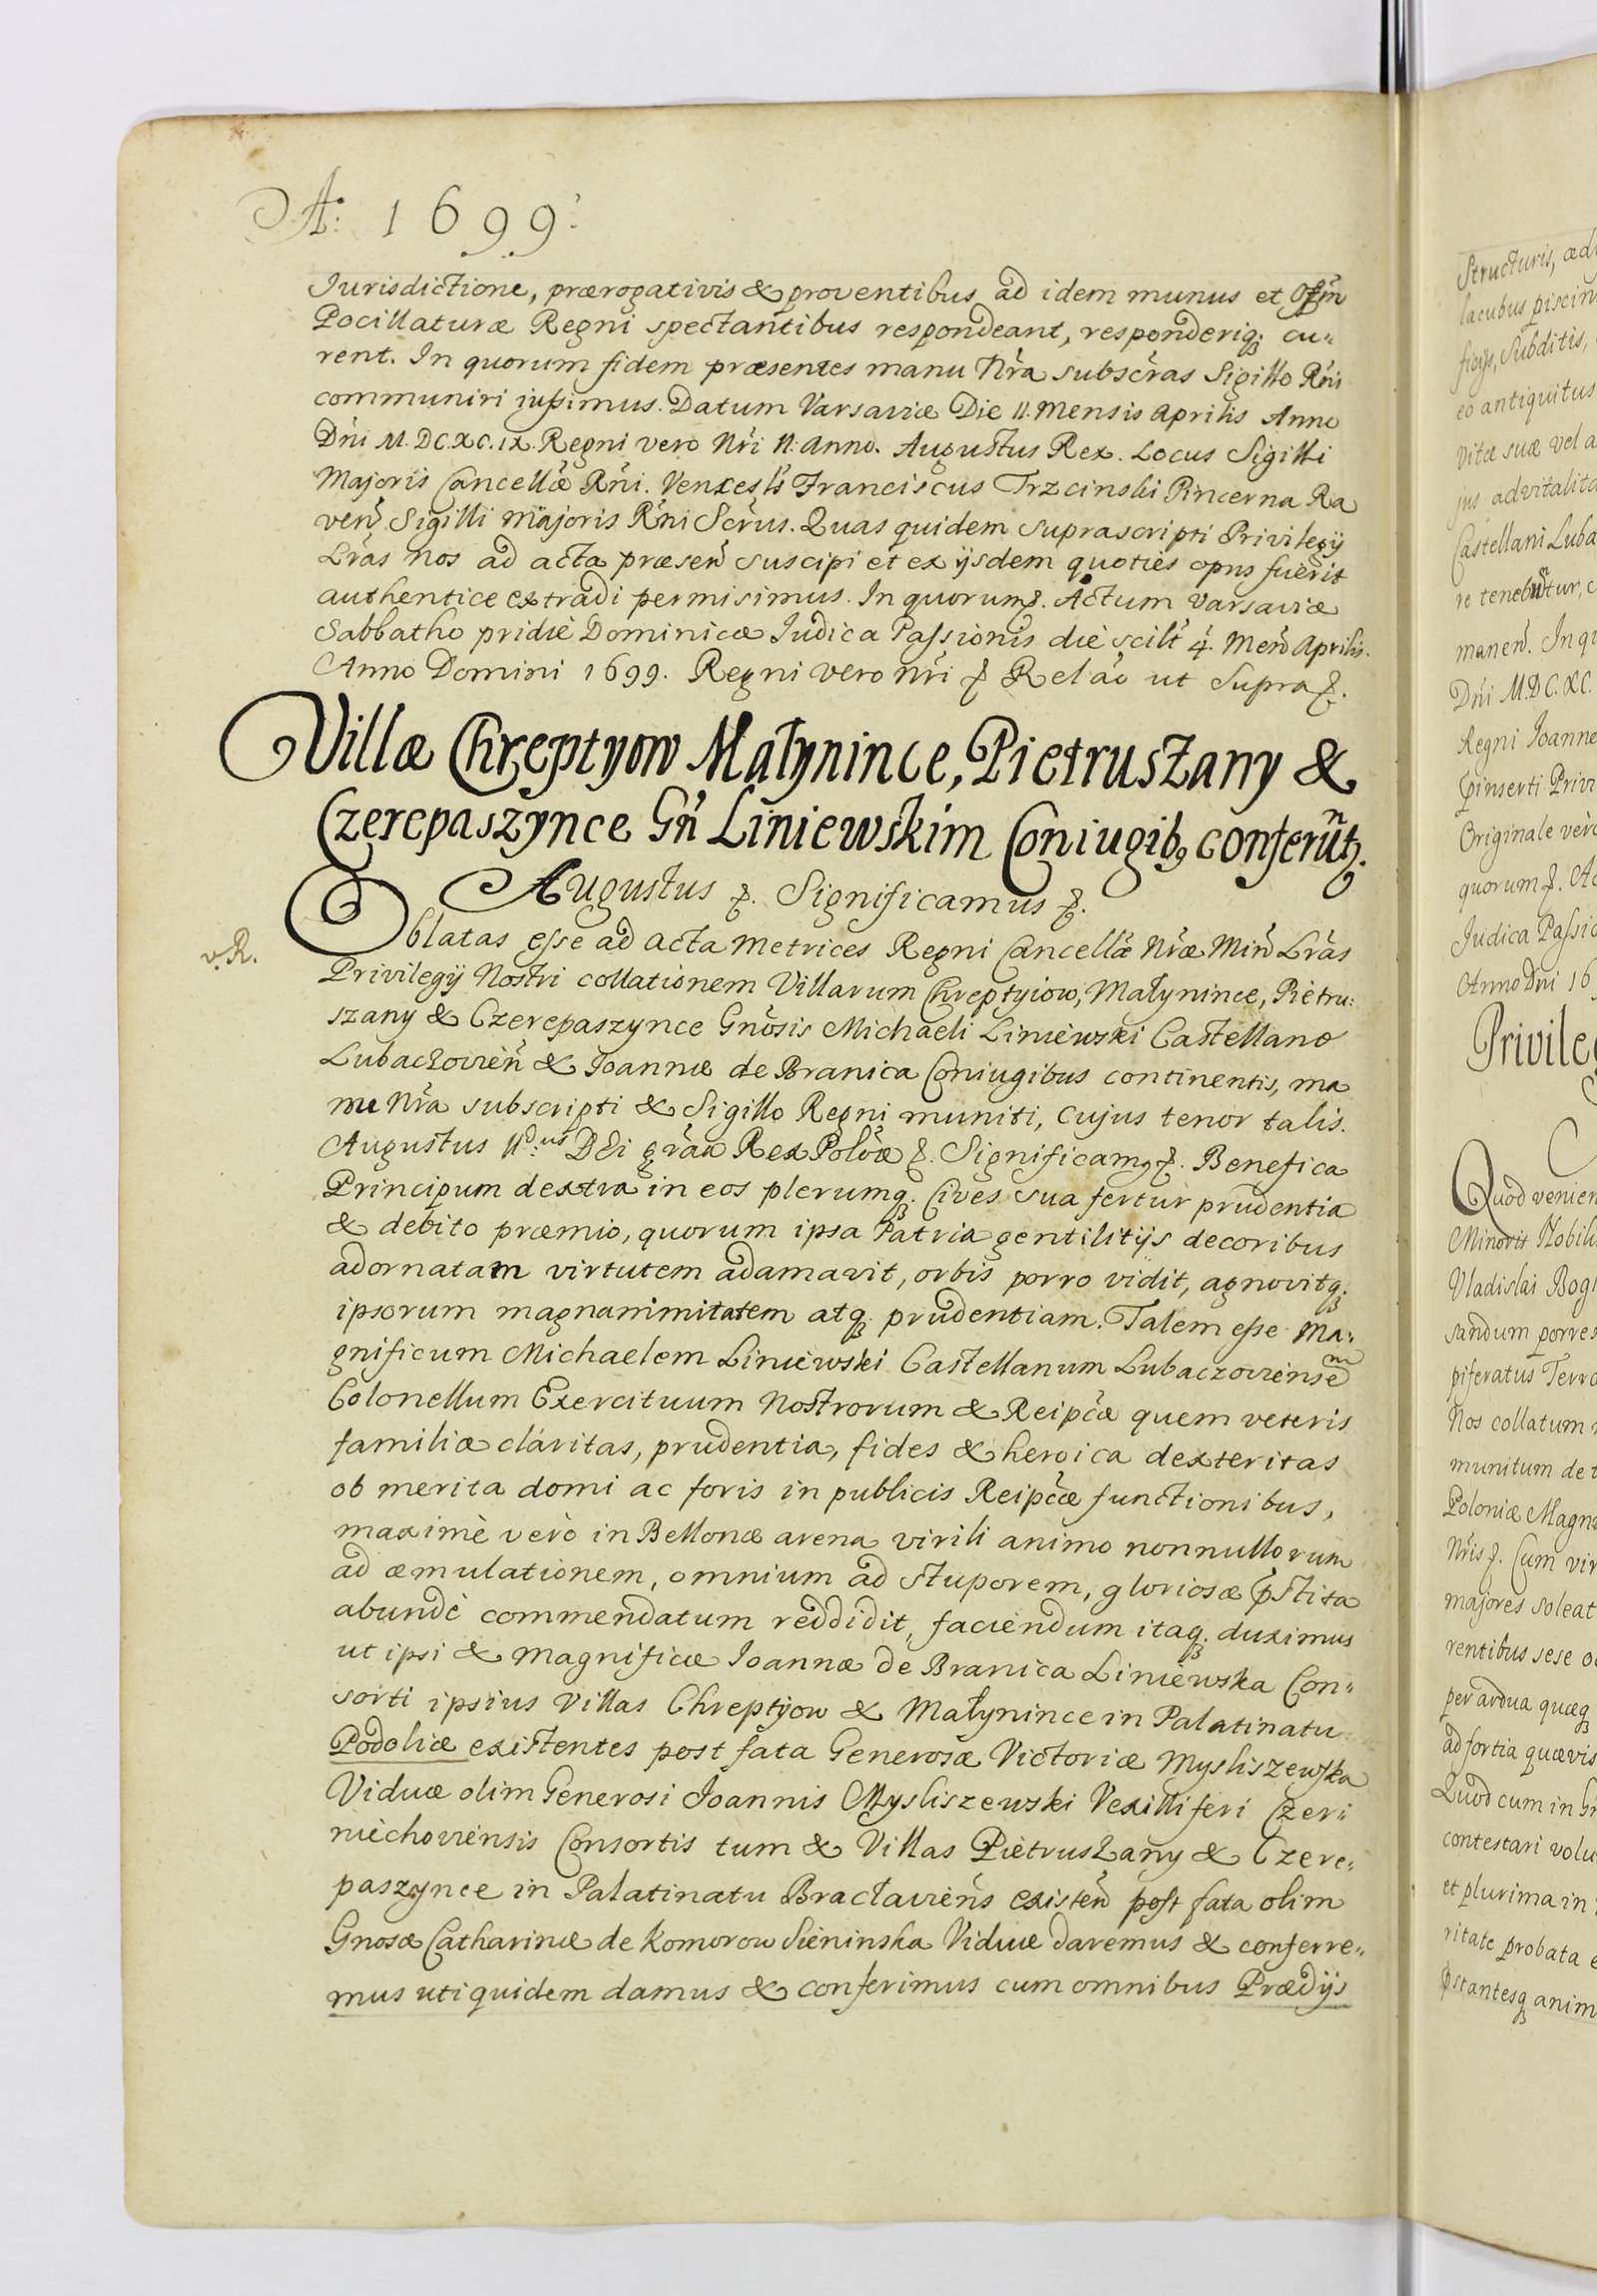 A: 1699
Jurisdictione, prærogativis & proventibus ad idem munus et Offm
Pocillaturæ Regni spectantibus respondeant, responderiq; cu„
rent. In quorum fidem præsentes manu Nra subscras Sigillo Rni
communiri jussimus. Datum Varsaviæ Die 11. Mensis Aprilis Anno
Dni M.DC.XC.IX. Regni vero Nri II. Anno. Augustus Rex. Locus Sigilli
Majoris Cancellæ Rni. Venceslś Franciscus Trzcinski Pincerna Ra
ven Sigilli Majoris Rni Scrus. Quas quidem suprascripti Privilegij
Lras Nos ad acta præsen suscipi et ex ijsdem quoties opus fuerit
authentice extradi permisimus. In quorum &. Actum Varsaviæ
Sabbatho pridiè Dominicæ Judica Passionis die scilt 4. Men Aprilis.
Anno Domini 1699. Regni vero Nri & Relao ut Supra &.
Villæ Chreptyow Małynince, Pietruszany &
Czerepaszynce Gn Liniewskim Coniugib9 conferutz.
Augustus &. Significamus &.
v. R.
Oblatas esse ad Acta Metrices Regni Cancellæ Nræ Min Lras
Privilegij Nostri collationem Villarum Chreptyiow, Małynince, Pietru:
szany & Czerepaszynce Gnosis Michaeli Liniewski Castellano
Lubaczovien & Joannæ de Branica Coniugibus continentis, ma
nu Nra subscripti & Sigillo Regni muniti, Cujus tenor talis.
Augustus IIdus DEi graa Rex Poloæ &. Significam9 &. Benefica
Principum dextra in eos plerumq; Cives sua fertur prudentia
& debito præmio, quorum ipsa Patria gentilitijs decoribus
adornatam virtutem adamavit, orbis porro vidit, agnovitq;
ipsorum magnanimitatem atq; prudentiam. Talem esse Ma„
gnificum Michaelem Liniewski Castellanum Lubaczoviensem
Colonellum Exercituum Nostrorum & Reipcæ quem veteris
familiæ claritas, prudentia, fides & heroica dexteritas
ob merita domi ac foris in publicis Reipcæ functionibus,
maximè verò in Bellonæ arena virili animo nonnullorum
ad æmulationem, omnium ad stuporem, gloriosæ pstita
abundè commendatum reddidit, faciendum itaq; duximus
ut ipsi & Magnificæ Joannæ de Branica Liniewska Con„
sorti ipsius Villas Chreptyow & Małynince in Palatinatu
Podoliæ existentes post fata Generosæ Victoriæ Mysliszewska
Viduæ olim Generosi Joannis Mysliszewski Vexilliferi Czer„
niechoviensis Consortis tum & Villas Pietruszany & Czere„
paszynce in Palatinatu Bracłaviens existen post fata olim
Gnosæ Catharinæ de Komorow Sieninska Viduæ daremus & conferre„
mus uti quidem damus & conferimus cum omnibus Prædijs
Structuris, æd
lacubus piscin
ficijs, Subditis,
eo antiquitus
vitæ suæ vel a
jus advitalita
Castellani Luba
re tenebuntur, c
manen. In qu
Dni M.DC.XC.
Regni Joanne
pinserti Privi
Originale verò
quorum &. Ac
Judica Passio
Anno Dni 16
Privileg
Quod venien
Minoris Nobili
Vladislai Bog
sandum porres
piferatus Terra
Nos collatum
munitum de
Poloniæ Magn
Nris &. Cum vir
majores soleat
rentibus sese o
per ardua quæq
ad fortia quævis
Quod cum in G
contestari volu
et plurima in
ritate probata e
pstantesq anim